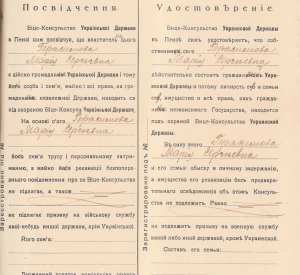 Посвідчення.
Віце-Консульство Української Держави
в Пензі сим посвідчує, що властитель цього
Герасимова
Марія Сергеевна
є дійсно громадянин Української Держави і тому
його особа і сем'я, майно і всі права, як грома-
незалежної Держави, находяться під
охороною Віце-Консула Української Держави.
На основі цього Герасимова
Марія Сергеевна
його сем'я трусу і персональному затри-
манню, а майно його реквізиції без попе-
про се Віце-Консульства
не підлягає, а також
не підлягає призиву на військову службу
якої-небудь иншої держави, крім Української.
Його сем'я:
Зареєстровано под №
Удостовѣреніе.
Вице-Консульство Украинской Державы
въ Пензѣ симъ удостовѣряетъ, что соб-
ственникъ сего Герасимова
Марія Сергеевна
дѣйствительно состоитъ гражданиномъ Укра-
инской Державы и потому личность его и семьи
его, имущество и всѣ права, какъ гражда-
нина независимаго Государства, находятся подъ
охраной Вице-Консула Украинской
Державы.
Въ силу этого Герасимова
Марія Сергеевна
и его семья обыску и личному задержанію,
а имущество его реквизиціи безъ предвари-
тельнаго освѣдомленія объ этомъ Консуль-
ства не подлежитъ. Равно
не подлежитъ призыву на военную службу
какой либо иной державы, кромѣ Украинской.
Составъ его семьи:
Зарегистрировано подъ №